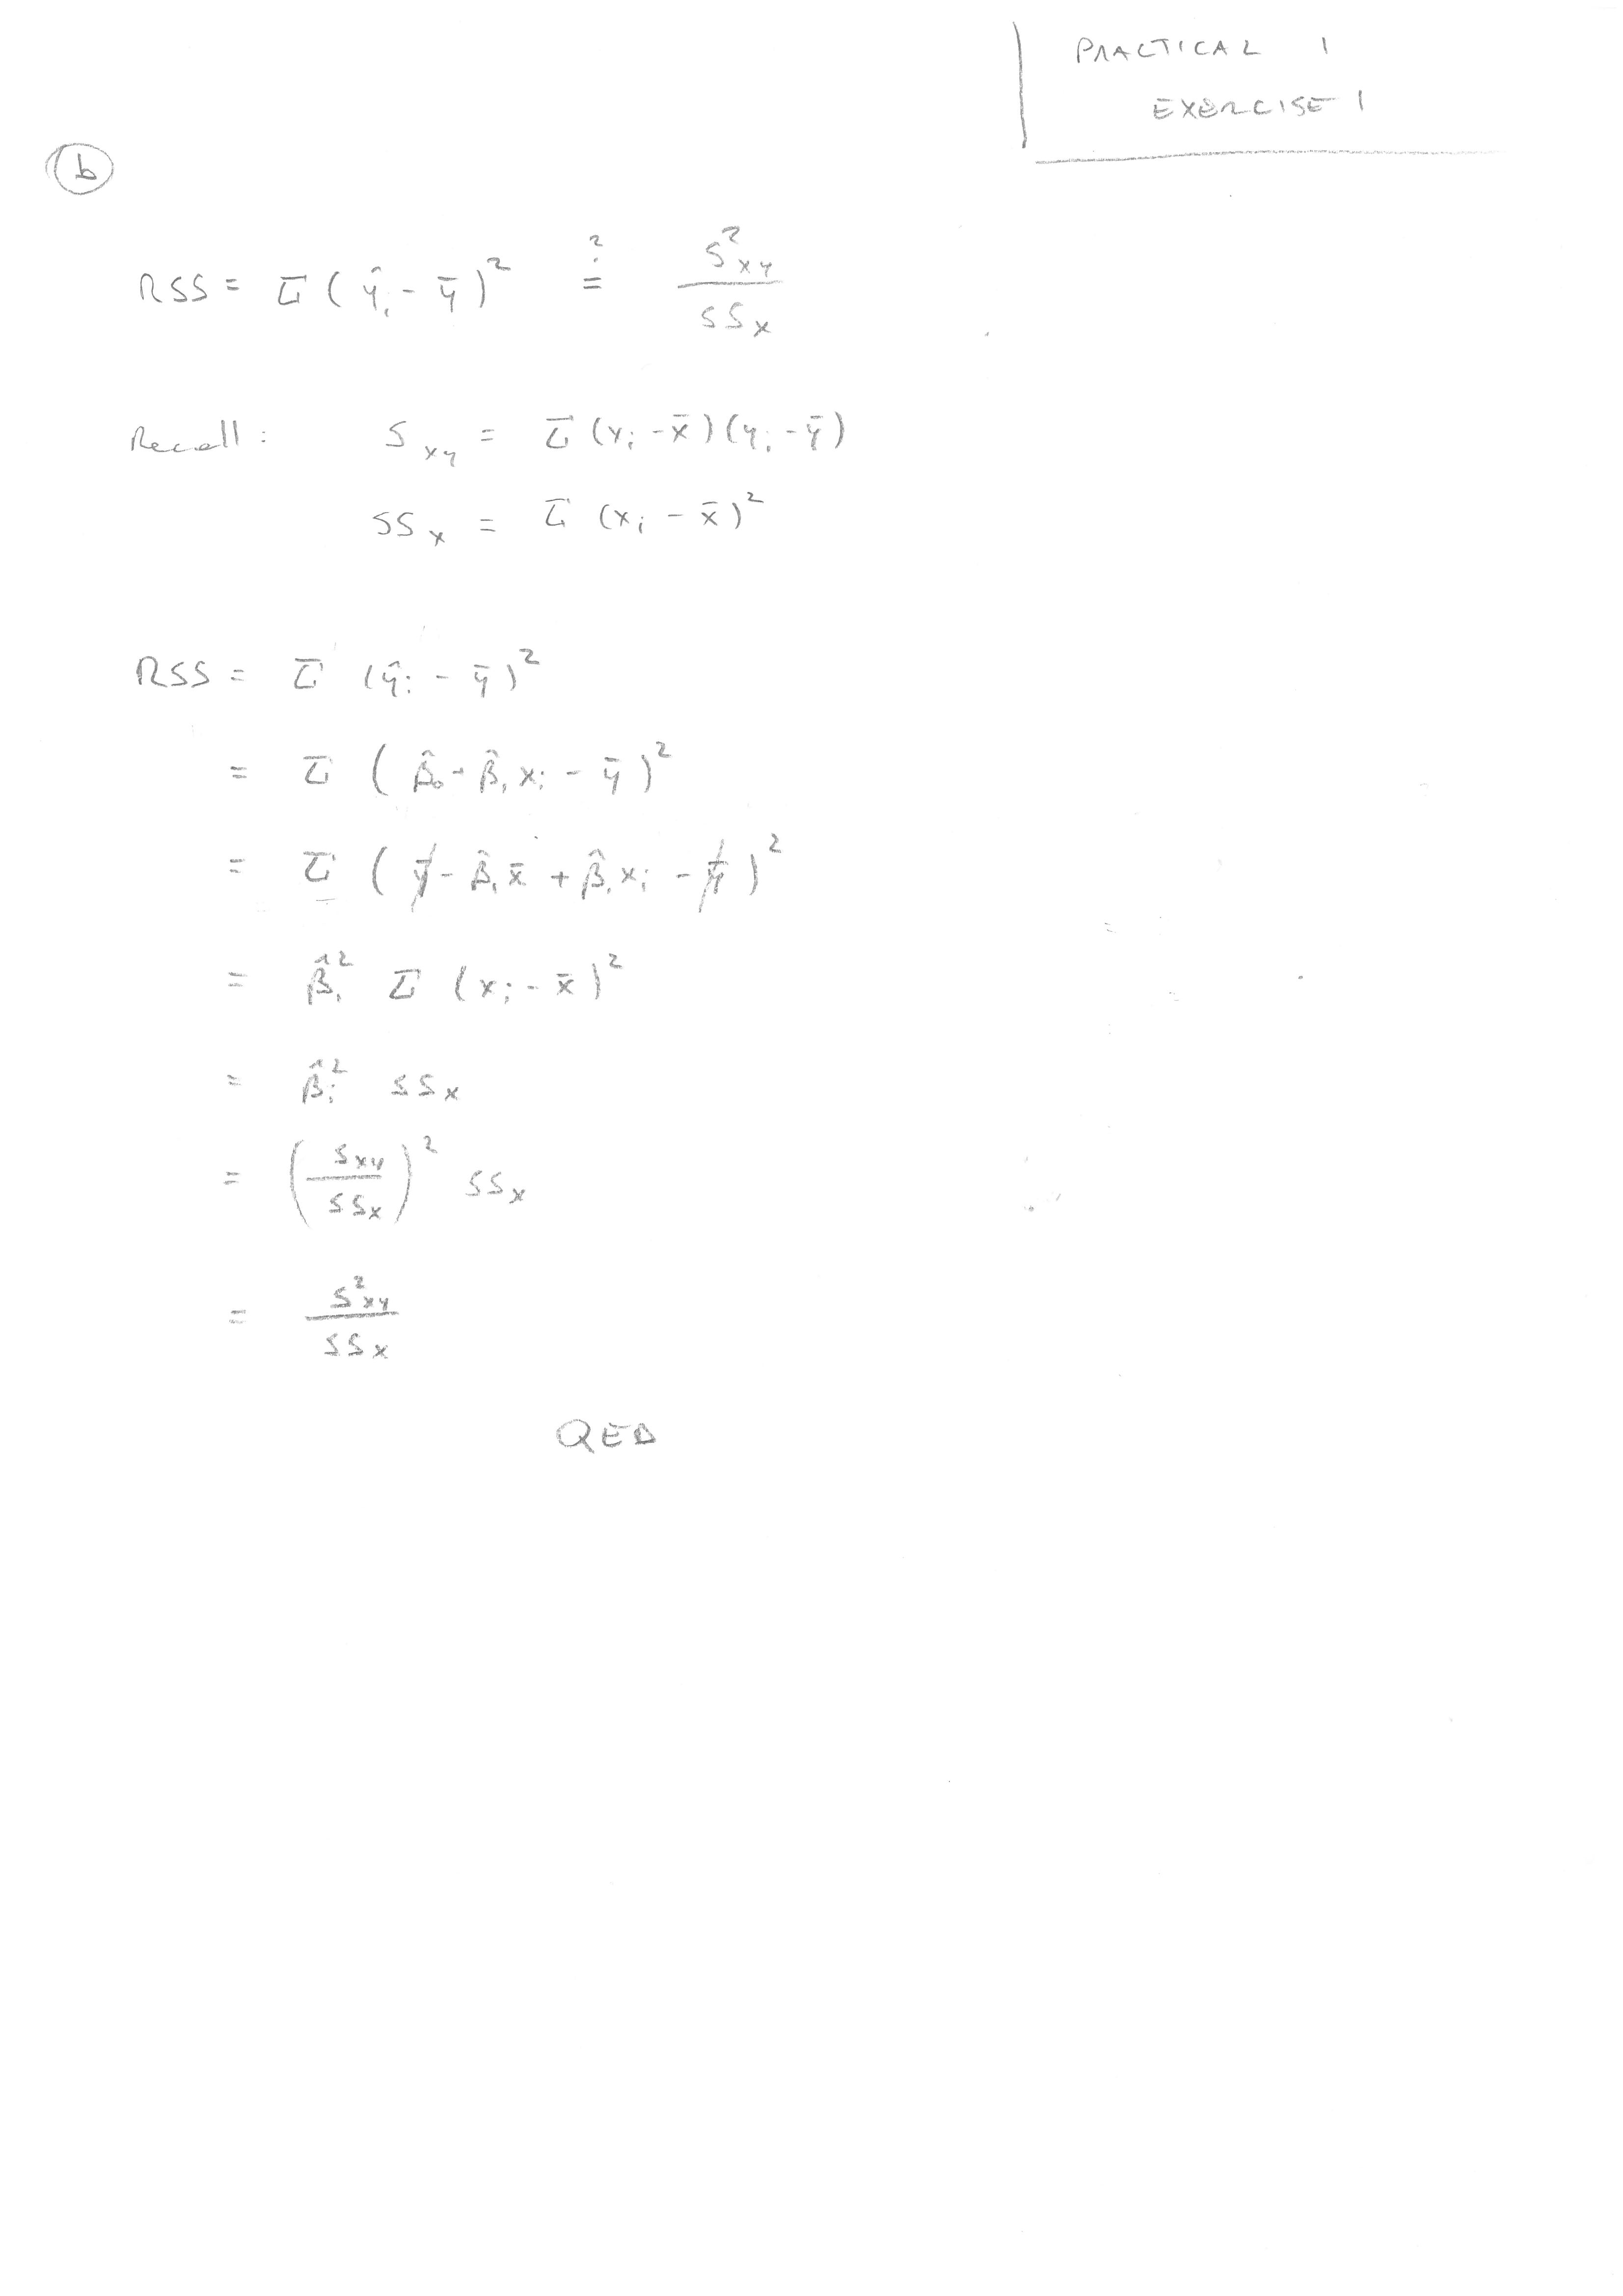 PRACTICAL 1
EXERCISE 1
b
RSS = Σ (ŷᵢ - ȳ)² ≟ S²xy / SSx
Recall: Sxy = Σ (xᵢ - x̄)(yᵢ - ȳ)
SSx = Σ (xᵢ - x̄)²
RSS = Σ (ŷᵢ - ȳ)²
= Σ (β̂₀ + β̂₁xᵢ - ȳ)²
= Σ (ȳ - β̂₁x̄ + β̂₁xᵢ - ȳ)²
= β̂₁² Σ (xᵢ - x̄)²
= β̂₁² SSx
= (Sxy / SSx)² SSx
= S²xy / SSx
QED